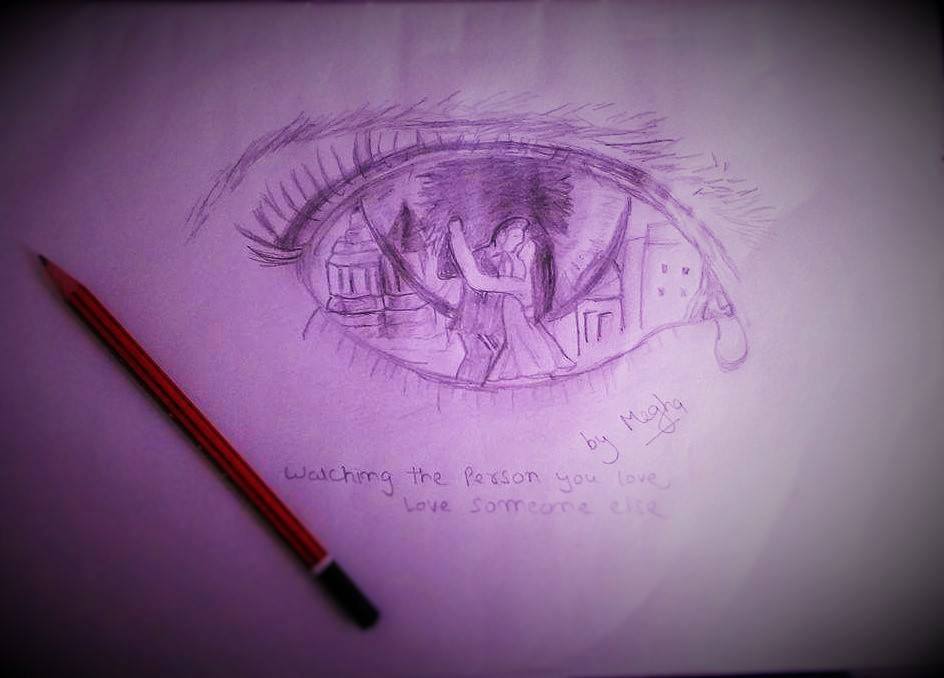 by Megha
Watching the Person you love
Love someone else